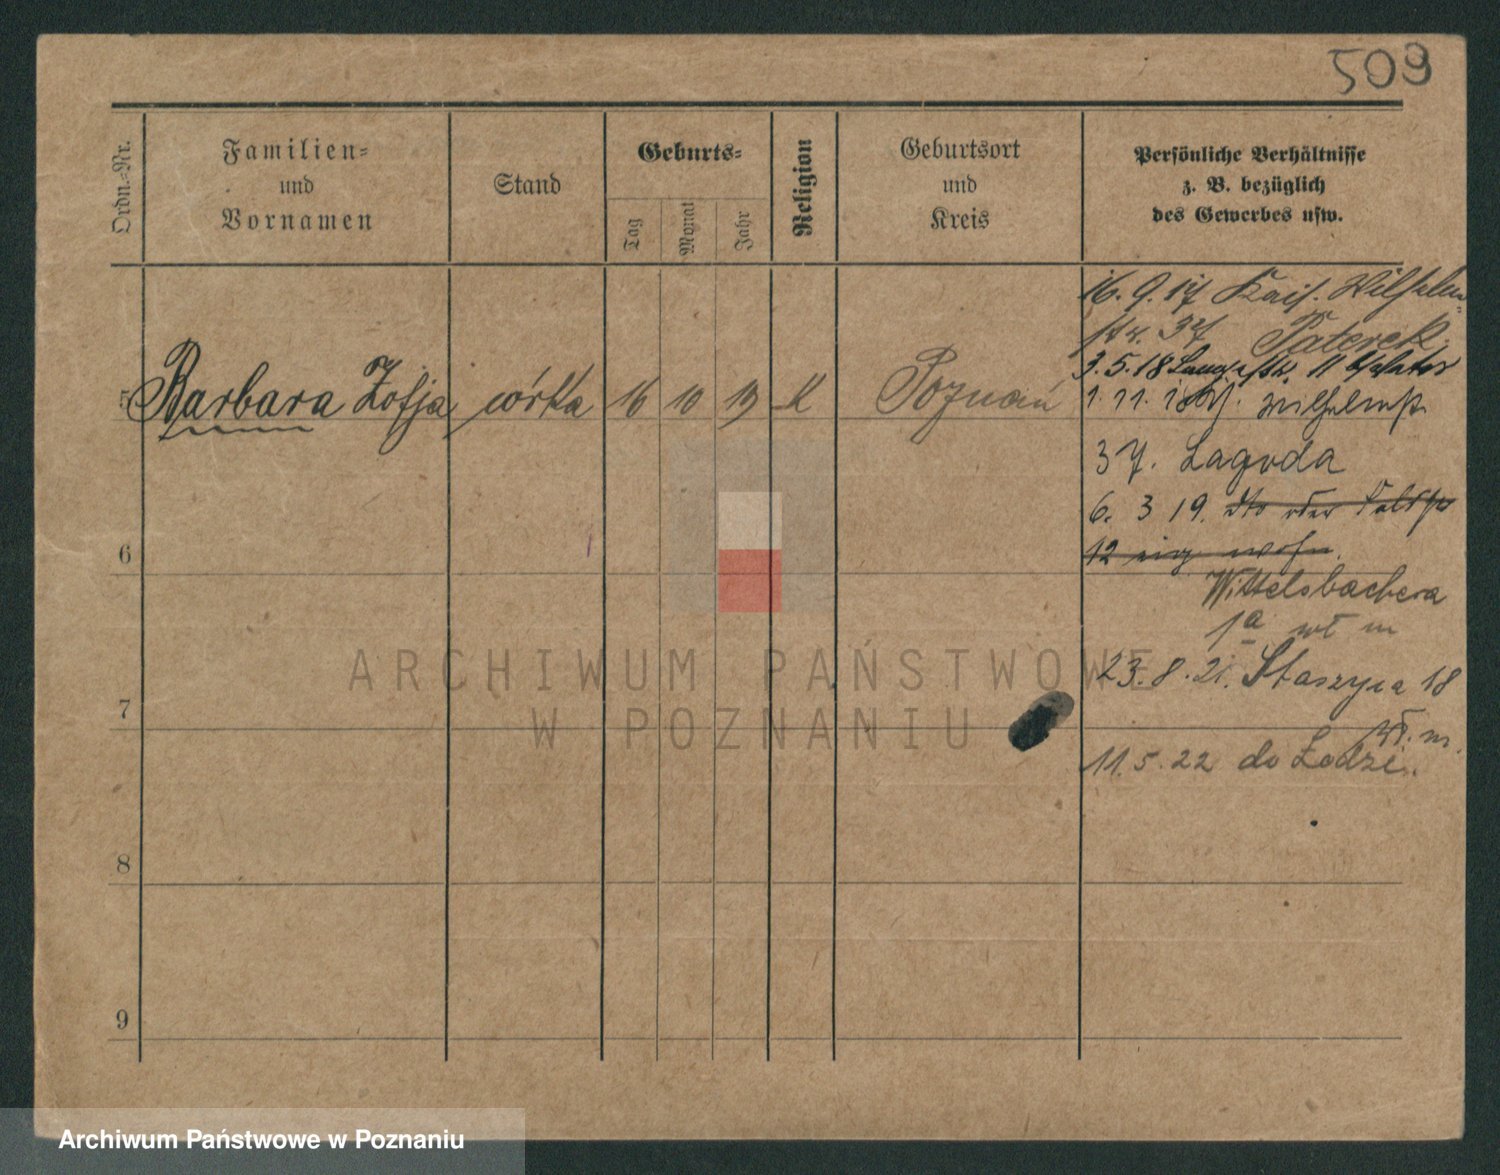 509
Ordn.-Nr.
Familien-
und
Vornamen
Stand
Geburts-
Tag
Monat
Jahr
Religion
Geburtsort
und
Kreis
Persönliche Verhältnisse
z. B. bezüglich
des Gewerbes usw.
5 Barbara Zofja córka 16 10 19 K Poznań
16. 9. 17 Kais. Wilhelm-
str. 37 Paterek.
3. 5. 18 11
1. 11. 18 Wilhelmstr.
37. Lagoda
6. 3 19. dto oder
12 eig wohn.
Wittelsbachera
1a wł m
23. 8. 21. Staszyca 18
wł. m.
11. 5. 22 do Łodzi.
6
7
8
9
ARCHIWUM PAŃSTWOWE
W POZNANIU
Archiwum Państwowe w Poznaniu